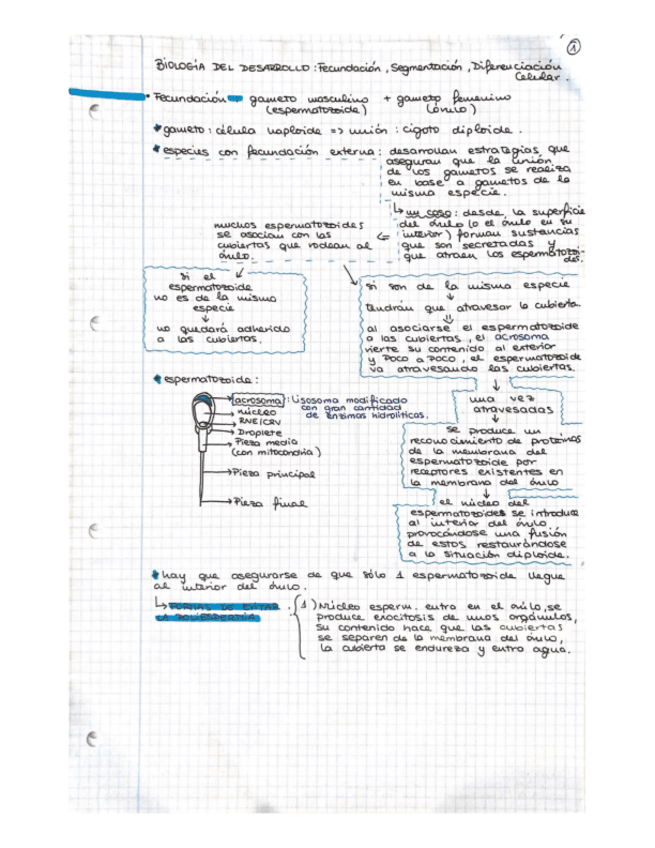 1
BIOLOGÍA DEL DESARROLLO: Fecundación, Segmentación, Diferenciación
Celular.
• Fecundación → gameto masculino + gameto femenino
(espermatozoide) (óvulo)
* gameto: célula haploide => unión: cigoto diploide.
* especies con fecundación externa: desarrollan estrategias que
aseguran que la unión
de los gametos se realiza
en base a gametos de la
misma especie.
↳ un caso: desde la superficie
del óvulo (o el óvulo en su
interior) forman sustancias
que son secretadas y
que atraen los espermatozoi-
des.
<= muchos espermatozoides
se asocian con las
cubiertas que rodean al
óvulo.
si el
espermatozoide
no es de la misma
especie
↓
no quedará adherido
a las cubiertas.
si son de la misma especie
↓
tendrán que atravesar la cubierta.
⇓
al asociarse el espermatozoide
a las cubiertas, el acrosoma
vierte su contenido al exterior
y poco a poco, el espermatozoide
va atravesando las cubiertas.
↓
una vez
atravesadas
↓
se produce un
reconocimiento de proteínas
de la membrana del
espermatozoide por
receptores existentes en
la membrana del óvulo
↓
el núcleo del
espermatozoides se introduce
al interior del óvulo
provocándose una fusión
de estos restaurándose
a la situación diploide.
* espermatozoide:
acrosoma: Lisosoma modificado
con gran cantidad
de enzimas hidrolíticas.
núcleo
RNE/CRV
Droplete
Pieza media
(con mitocondria)
Pieza principal
Pieza final
* hay que asegurarse de que sólo 1 espermatozoide llegue
al interior del óvulo.
↳ FORMAS DE EVITAR
LA POLIESPERMIA
1) Núcleo esperm. entra en el óvulo, se
produce exocitosis de unos orgánulos,
su contenido hace que las cubiertas
se separen de la membrana del óvulo,
la cubierta se endureza y entra agua.